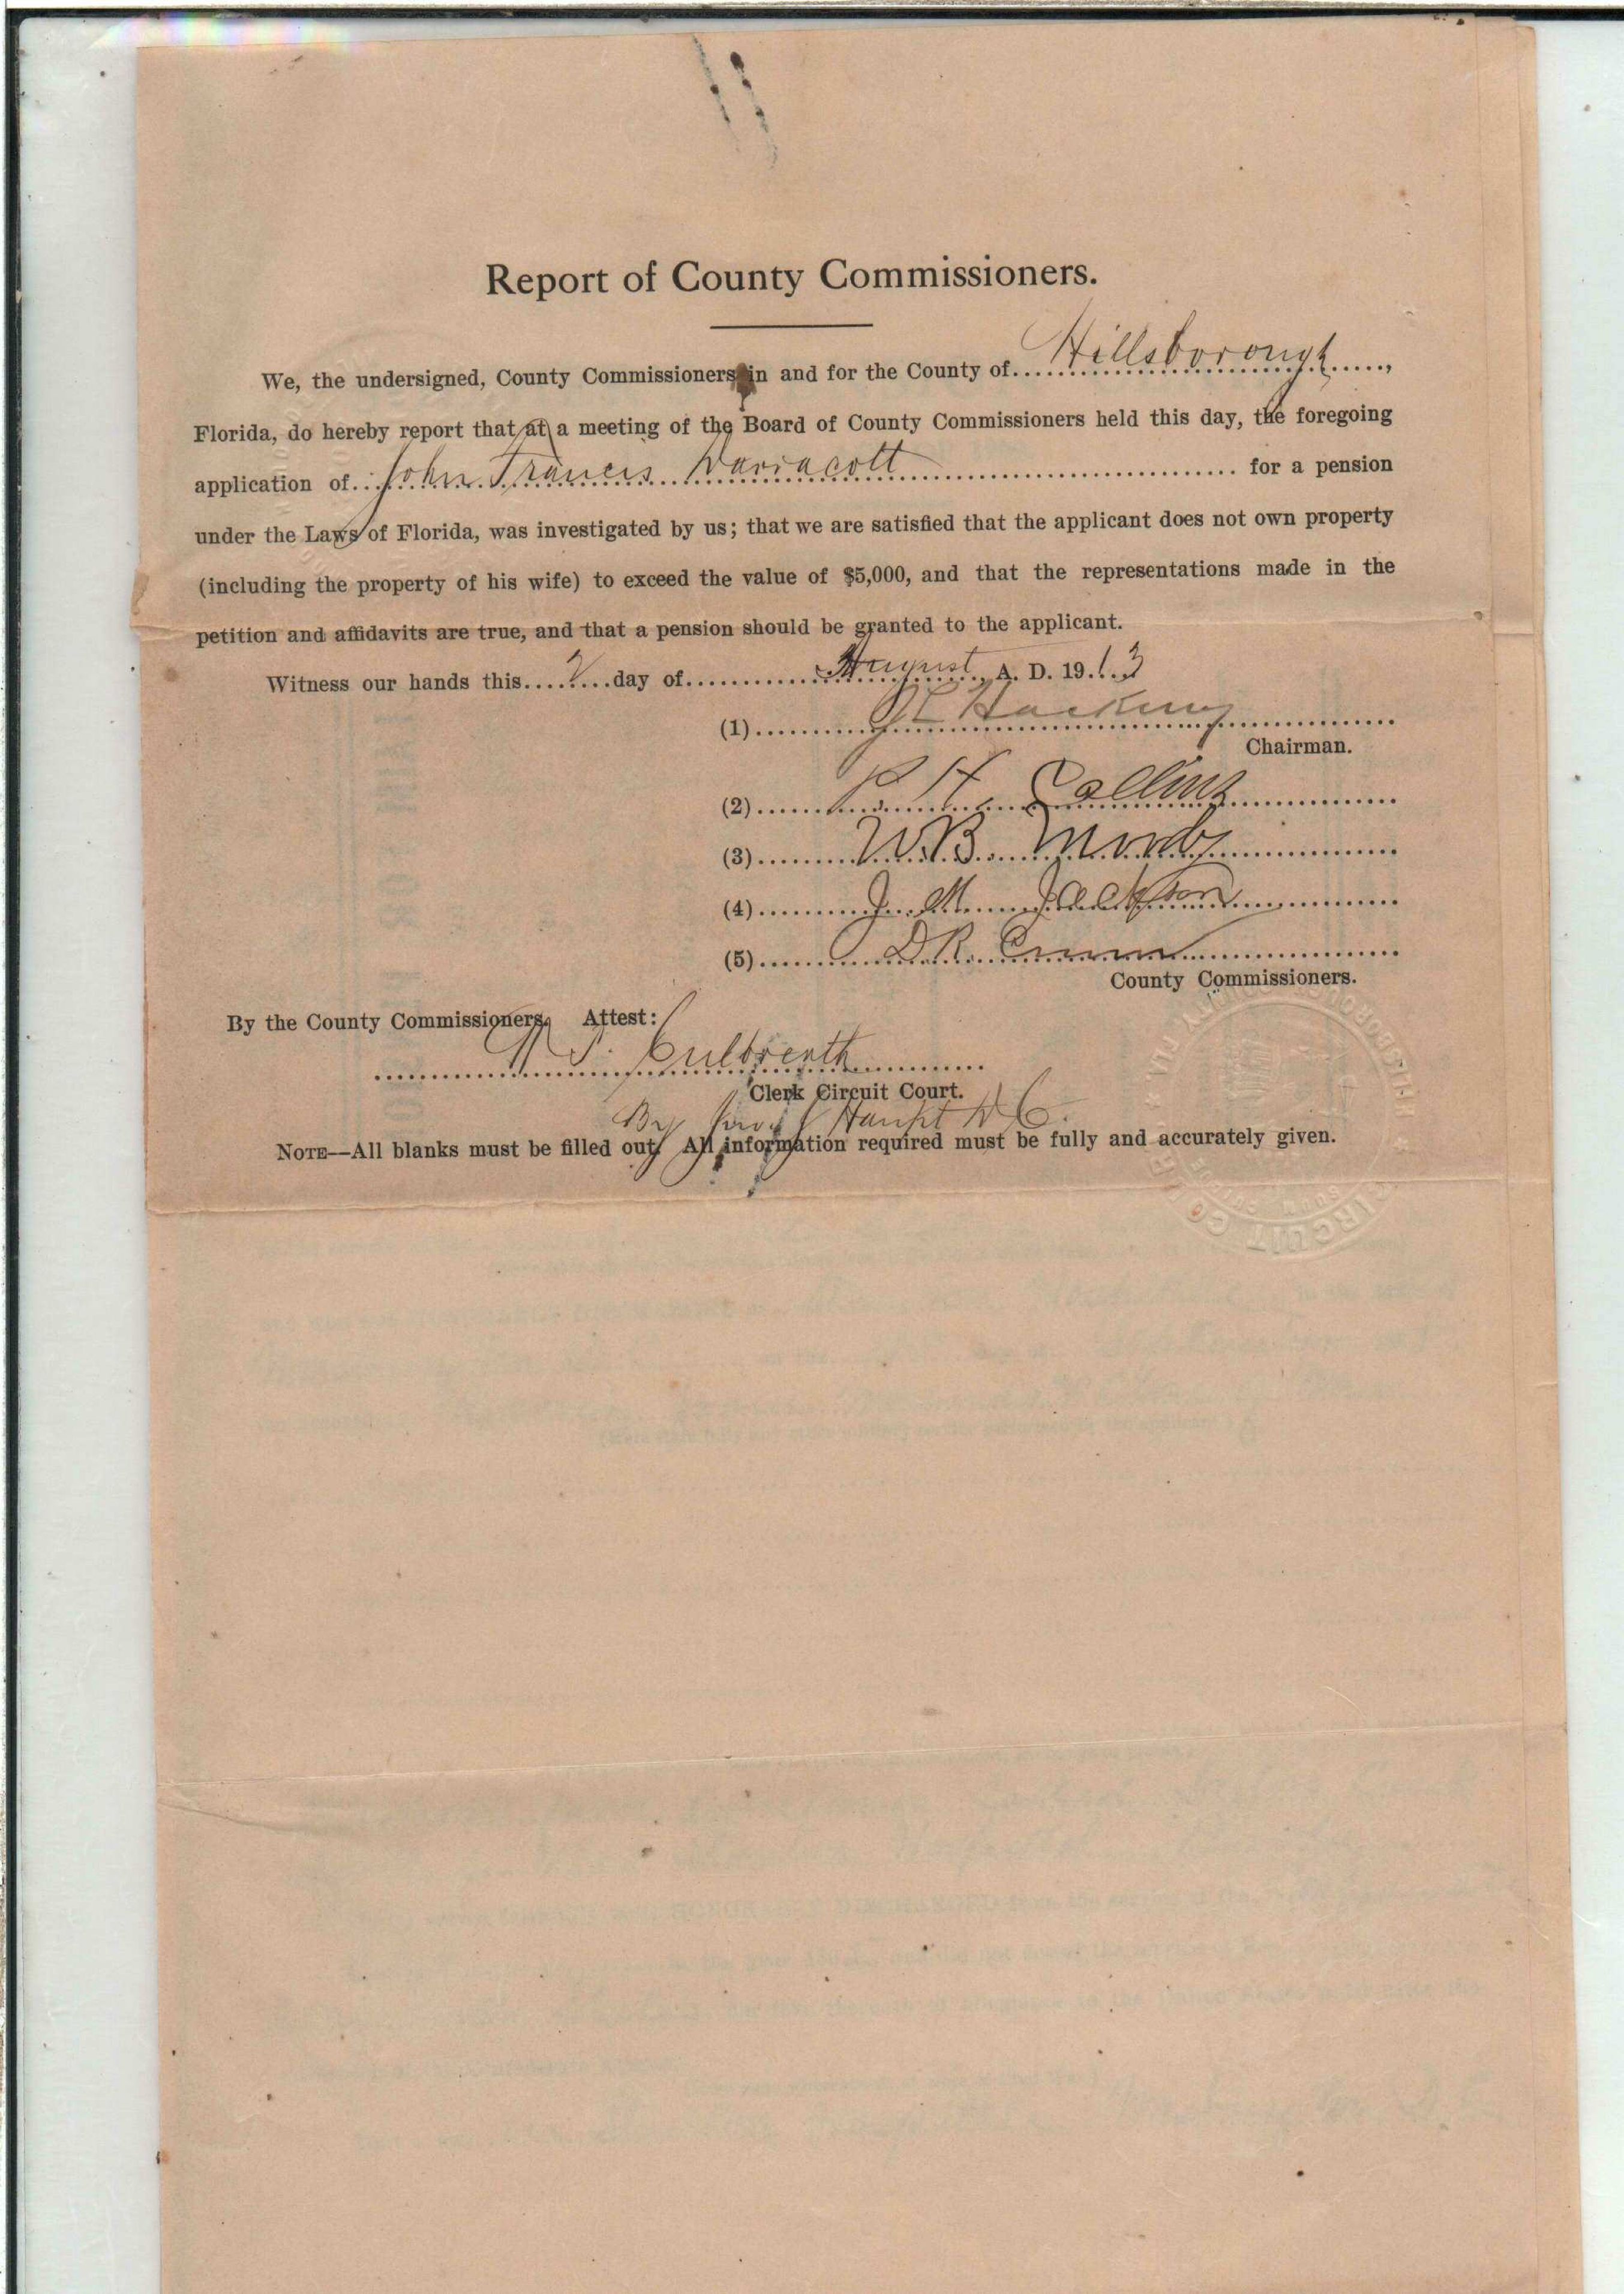 Report of County Commissioners.
We, the undersigned, County Commissioners in and for the County of Hillsborough,
Florida, do hereby report that at a meeting of the Board of County Commissioners held this day, the foregoing
application of John Francis for a pension
under the Laws of Florida, was investigated by us; that we are satisfied that the applicant does not own property
(including the property of his wife) to exceed the value of $5,000, and that the representations made in the
petition and affidavits are true, and that a pension should be granted to the applicant.
Witness our hands this 2 day of August, A. D. 1913
(1)
Chairman.
(2) Collins
(3) W. B.
(4) J. M. Jackson
(5) D R
County Commissioners.
By the County Commissioners. Attest:
Culbreath
Clerk Circuit Court.
By Haupt D C.
NOTE—All blanks must be filled out. All information required must be fully and accurately given.